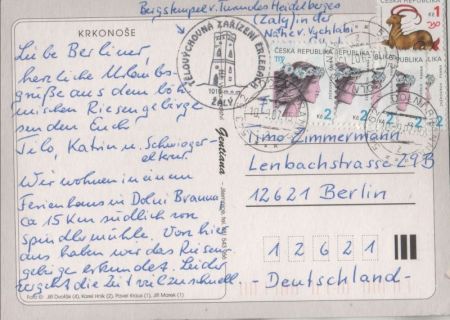 KRKONOŠE
Bergstempel v. Turm des Heidelberges
(Žalý) in der
Nähe v. Vychlabi
Liebe Berliner,
herzliche Urlaubs-
grüße aus dem böh-
mischen Riesengebirge
senden Euch
Tilo, Katrin u. Schwieger-
eltern.
Wir wohnen in einem
Ferienhaus in Dolni Branna
ca 15 Km südlich von
Spindlermühle. Von hier
aus haben wir das Riesen-
gebirge erkundet. Leider
vergeht die Zeit viel zu schnell.
TĚLOVÝCHOVNÁ ZAŘÍZENÍ
ŽALÝ
ČESKÁ REPUBLIKA
1 Kč
ČESKÁ REPUBLIKA
ČESKÁ REPUBLIKA
Kč 2
Kč 2
2
2
Gentiana
Timo Zimmermann
Lenbachstrasse 29B
12621 Berlin
1 2 6 2 1
- Deutschland -
Foto © Jiří Dvořák (4), Karel Hník (2), Pavel Kraus (1), Jiří Marek (1)